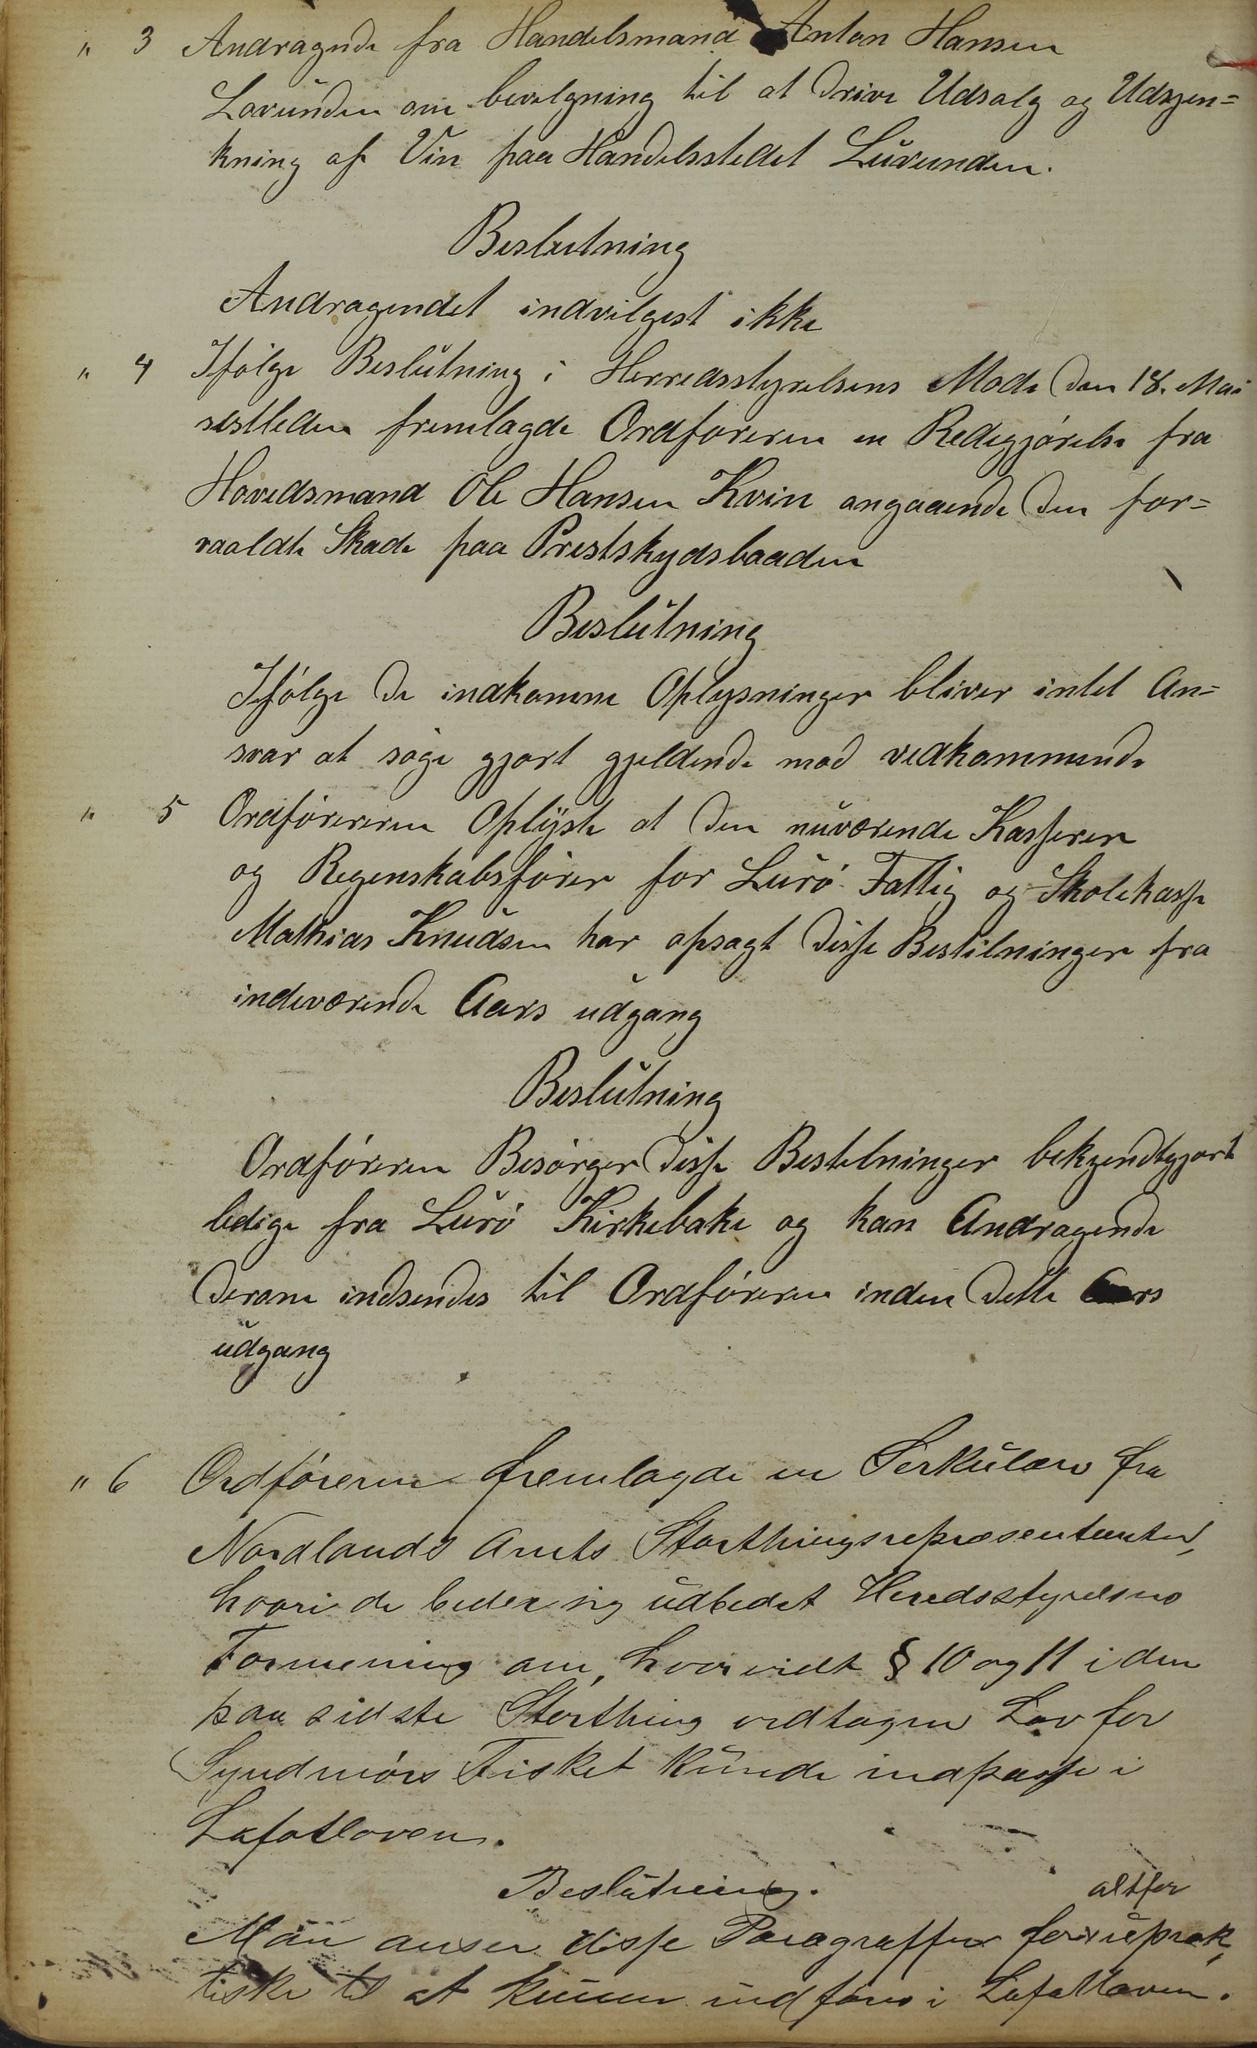 " 3 Andragende fra Handelsmand Anton Hansen
Lovunden om bevilgning til at drive Udsalg og Udsjen=
kning af Vin paa Handelsstedet Luvunden.
Beslutning
Andragendet indvilgest ikke
" 4 Ifølge Beslutning i Herredsstyrelsens Møde den 18. Mai
sistleden fremlagde Ordføreren en Redegjørelse fra
Hovedsmand Ole Hansen Kvin angaaende den for=
vaaldte Skade paa Prestskydsbaaden
Beslutning
Ifølge de indkomne Oplysninger bliver intet An=
svar at søge gjort gjeldende mod vedkommende
" 5 Ordføreren Oplyste at den nuværende Kasserer
og Regenskabsfører for Lurø Fattig og Skolekasse
Mathias Knudsen har opsagt disse Bestilninger fra
indeværende Aars udgang
Beslutning
Ordføreren Besørger disse Bestelninger bekjendtgjort
ledige fra Lurø Kirkebake og kan Andragende
derom indsendes til Ordføreren inden dette Aars
udgang
" 6 Ordføreren fremlagde en Serkulære fra
Nordlands Amts Storthingsrepræsentanter,
hvori de beder sig udbedet Heredsstyrelsens
Formening om, hvorvidt § 10 og 11 i den
paa sidste Storthing vedtagen Lov for
Syndmørs Fisket kunde indpasse i
Lofotloven.
Beslutning.
altfor
Man anser disse Paragraffer for uprak,
tiske til at kunne indføres i Lofotloven.